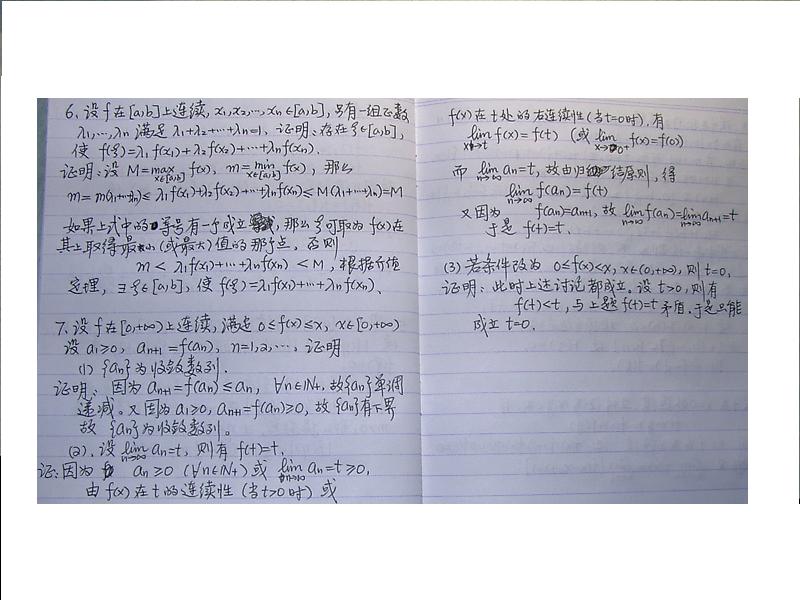 6、设f在[a,b]上连续, x₁,x₂,…,xₙ∈[a,b], 另有一组正数
λ₁,…,λₙ 满足 λ₁+λ₂+…+λₙ=1, 证明:存在ξ∈[a,b],
使 f(ξ)=λ₁f(x₁)+λ₂f(x₂)+…+λₙf(xₙ).
证明:设 M=max f(x), m=min f(x), 那么
x∈[a,b] x∈[a,b]
m=m(λ₁+…λₙ)≤λ₁f(x₁)+λ₂f(x₂)+…+λₙf(xₙ)≤M(λ₁+…+λₙ)=M
如果上式中的等号有一个成立, 那么ξ可取为f(x)在
其上取得最小(或最大)值的那个点, 否则
m<λ₁f(x₁)+…+λₙf(xₙ)<M, 根据介值
定理, ∃ξ∈[a,b], 使 f(ξ)=λ₁f(x₁)+…+λₙf(xₙ).
7、设f在[0,+∞)上连续, 满足 0≤f(x)≤x, x∈[0,+∞)
设 a₁≥0, aₙ₊₁=f(aₙ), n=1,2,…, 证明
(1) {aₙ}为收敛数列.
证明: 因为 aₙ₊₁=f(aₙ)≤aₙ, ∀n∈ℕ₊, 故{aₙ}单调
递减. 又因为a₁≥0, aₙ₊₁=f(aₙ)≥0, 故{aₙ}有下界
故 {aₙ}为收敛数列。
(2). 设 lim aₙ=t, 则有 f(t)=t.
n→∞
证:因为 aₙ≥0 (∀n∈ℕ₊) 或 lim aₙ=t≥0,
n→∞
由f(x)在t的连续性(当t>0时)或
f(x)在t处的右连续性(当t=0时), 有
lim f(x)=f(t) (或 lim f(x)=f(0))
x→t x→0⁺
而 lim aₙ=t, 故由归结原则, 得
n→∞
lim f(aₙ)=f(t)
n→∞
又因为 f(aₙ)=aₙ₊₁, 故 lim f(aₙ)=lim aₙ₊₁=t
n→∞ n→∞
于是 f(t)=t.
(3) 若条件改为 0≤f(x)<x, x∈(0,+∞), 则t=0.
证明: 此时上述讨论都成立. 设t>0, 则有
f(t)<t, 与上题f(t)=t矛盾. 于是只能
成立 t=0.